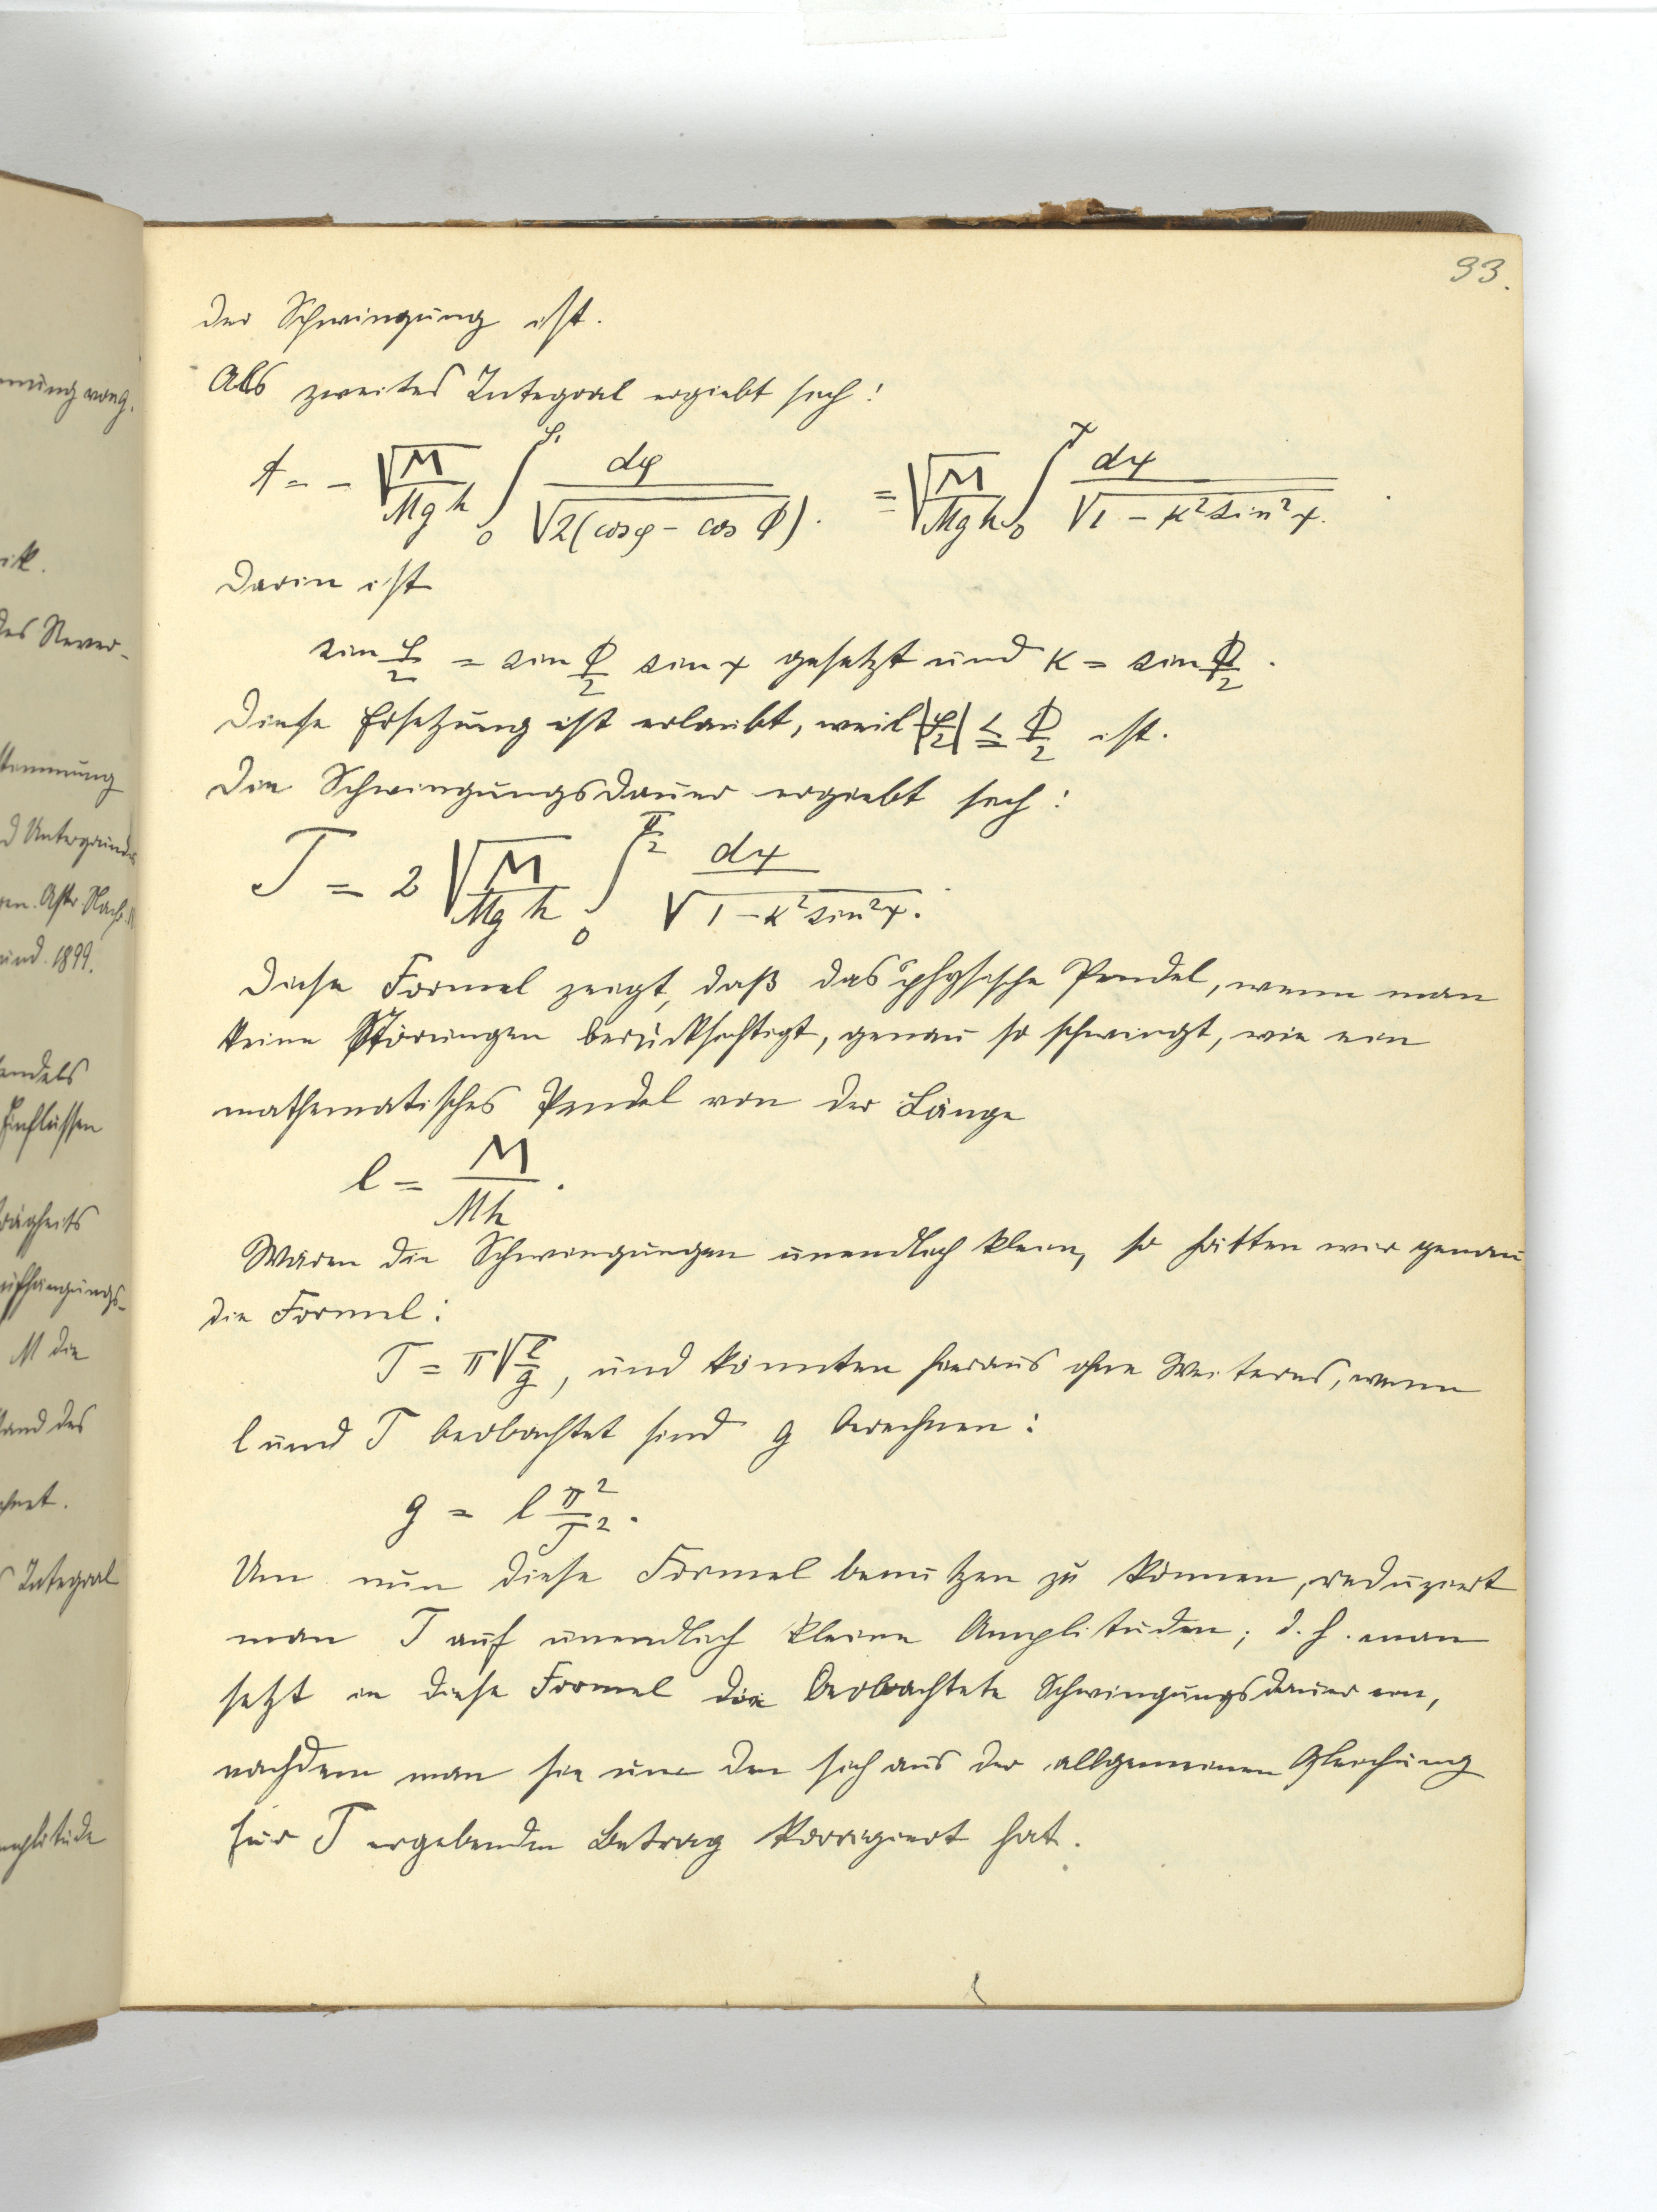 93.
der Schwingung ist.
Als zweites Integral ergiebt sich:
t = - √(M/Mgh) ∫₀^φ dφ/√(2(cosφ - cos Φ)). = √(M/Mgh) ∫₀^χ dχ/√(1 - κ² sin² χ).
Darin ist
sin φ/2 = sin Φ/2 sin χ gesetzt und κ = sin Φ/2.
Diese Ersetzung ist erlaubt, weil |φ/2| ≦ Φ/2 ist.
Die Schwingungsdauer ergiebt sich:
T = 2 √(M/Mgh) ∫₀^(π/2) dχ/√(1 - κ² sin² χ).
Diese Formel zeigt, daß das physische Pendel, wenn man
keine Störungen berücksichtigt, genau so schwingt, wie ein
mathematisches Pendel von der Länge
l = M/Mh.
Wären die Schwingungen unendlich klein, so hätten wir genau
die Formel:
T = π √(l/g), und könnten hieraus ohne Weiteres, wenn
l und T beobachtet sind g berechnen:
g = l π²/T².
Um nun diese Formel benutzen zu können, reduziert
man T auf unendlich kleine Amplituden; d. h. man
setzt in diese Formel die beobachtete Schwingungsdauer ein,
nachdem man sie um den sich aus der allgemeinen Gleichung
für T ergebenden Betrag korrigiert hat.